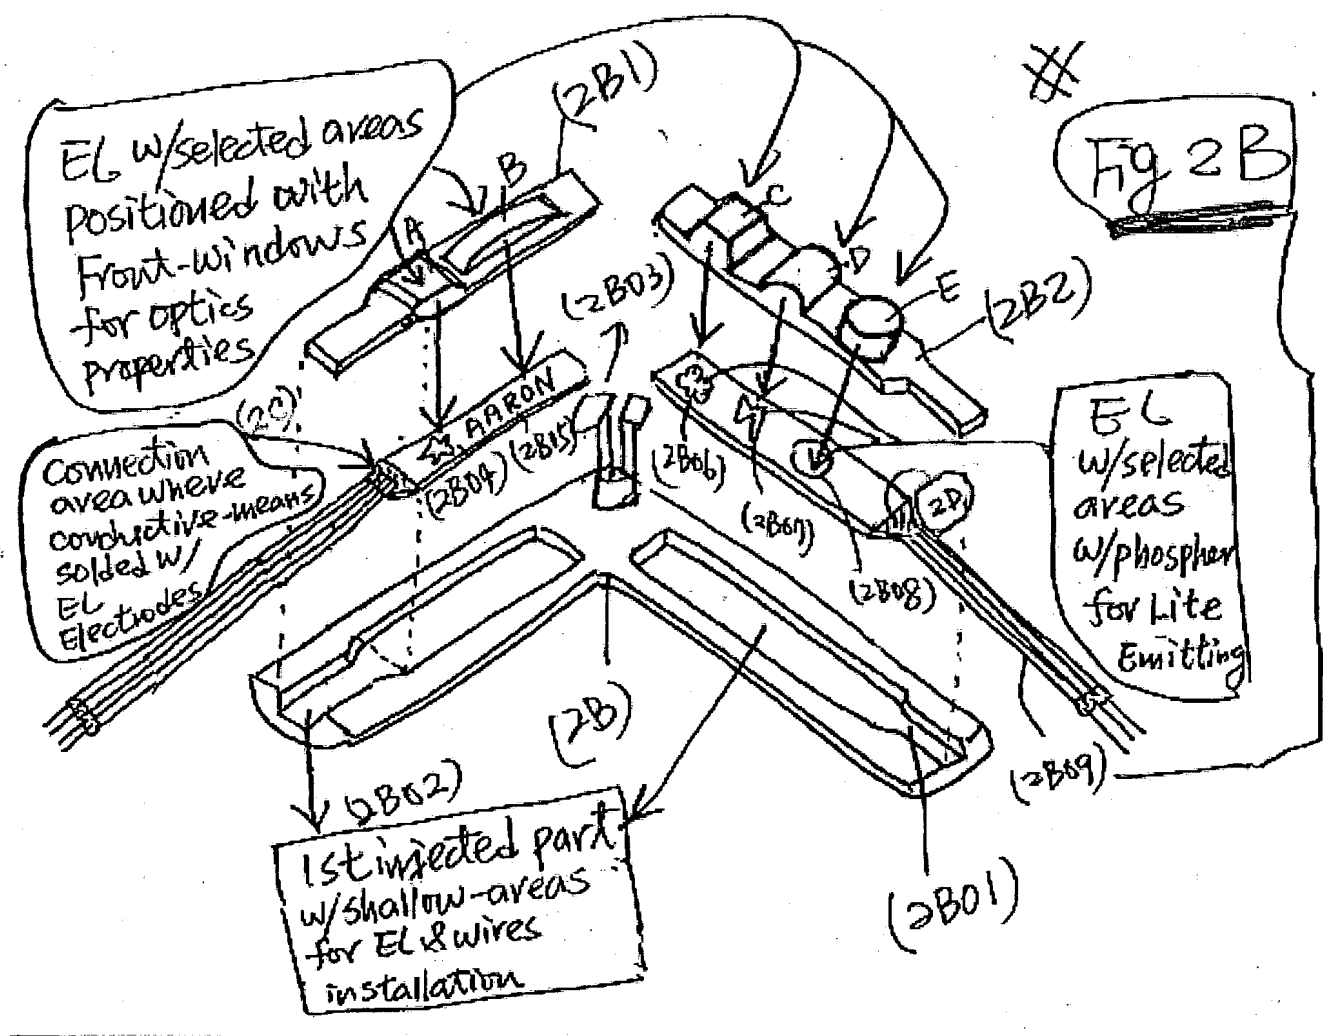 EL w/selected areas
positioned with
Front-windows
for optics
properties
(2B1)
Fig 2B
A
B
C
D
E
(2B03)
(2B2)
(2C)
AARON
(2B04)
(2B15)
(2B06)
(2B07)
(2B08)
2D
Connection
area where
conductive-means
solded w/
EL
Electrodes
EL
w/selected
areas
w/phospher
for Lite
Emitting
(2B)
(2B02)
(2B09)
(2B01)
1st injected part
w/shallow-areas
for EL & wires
installation